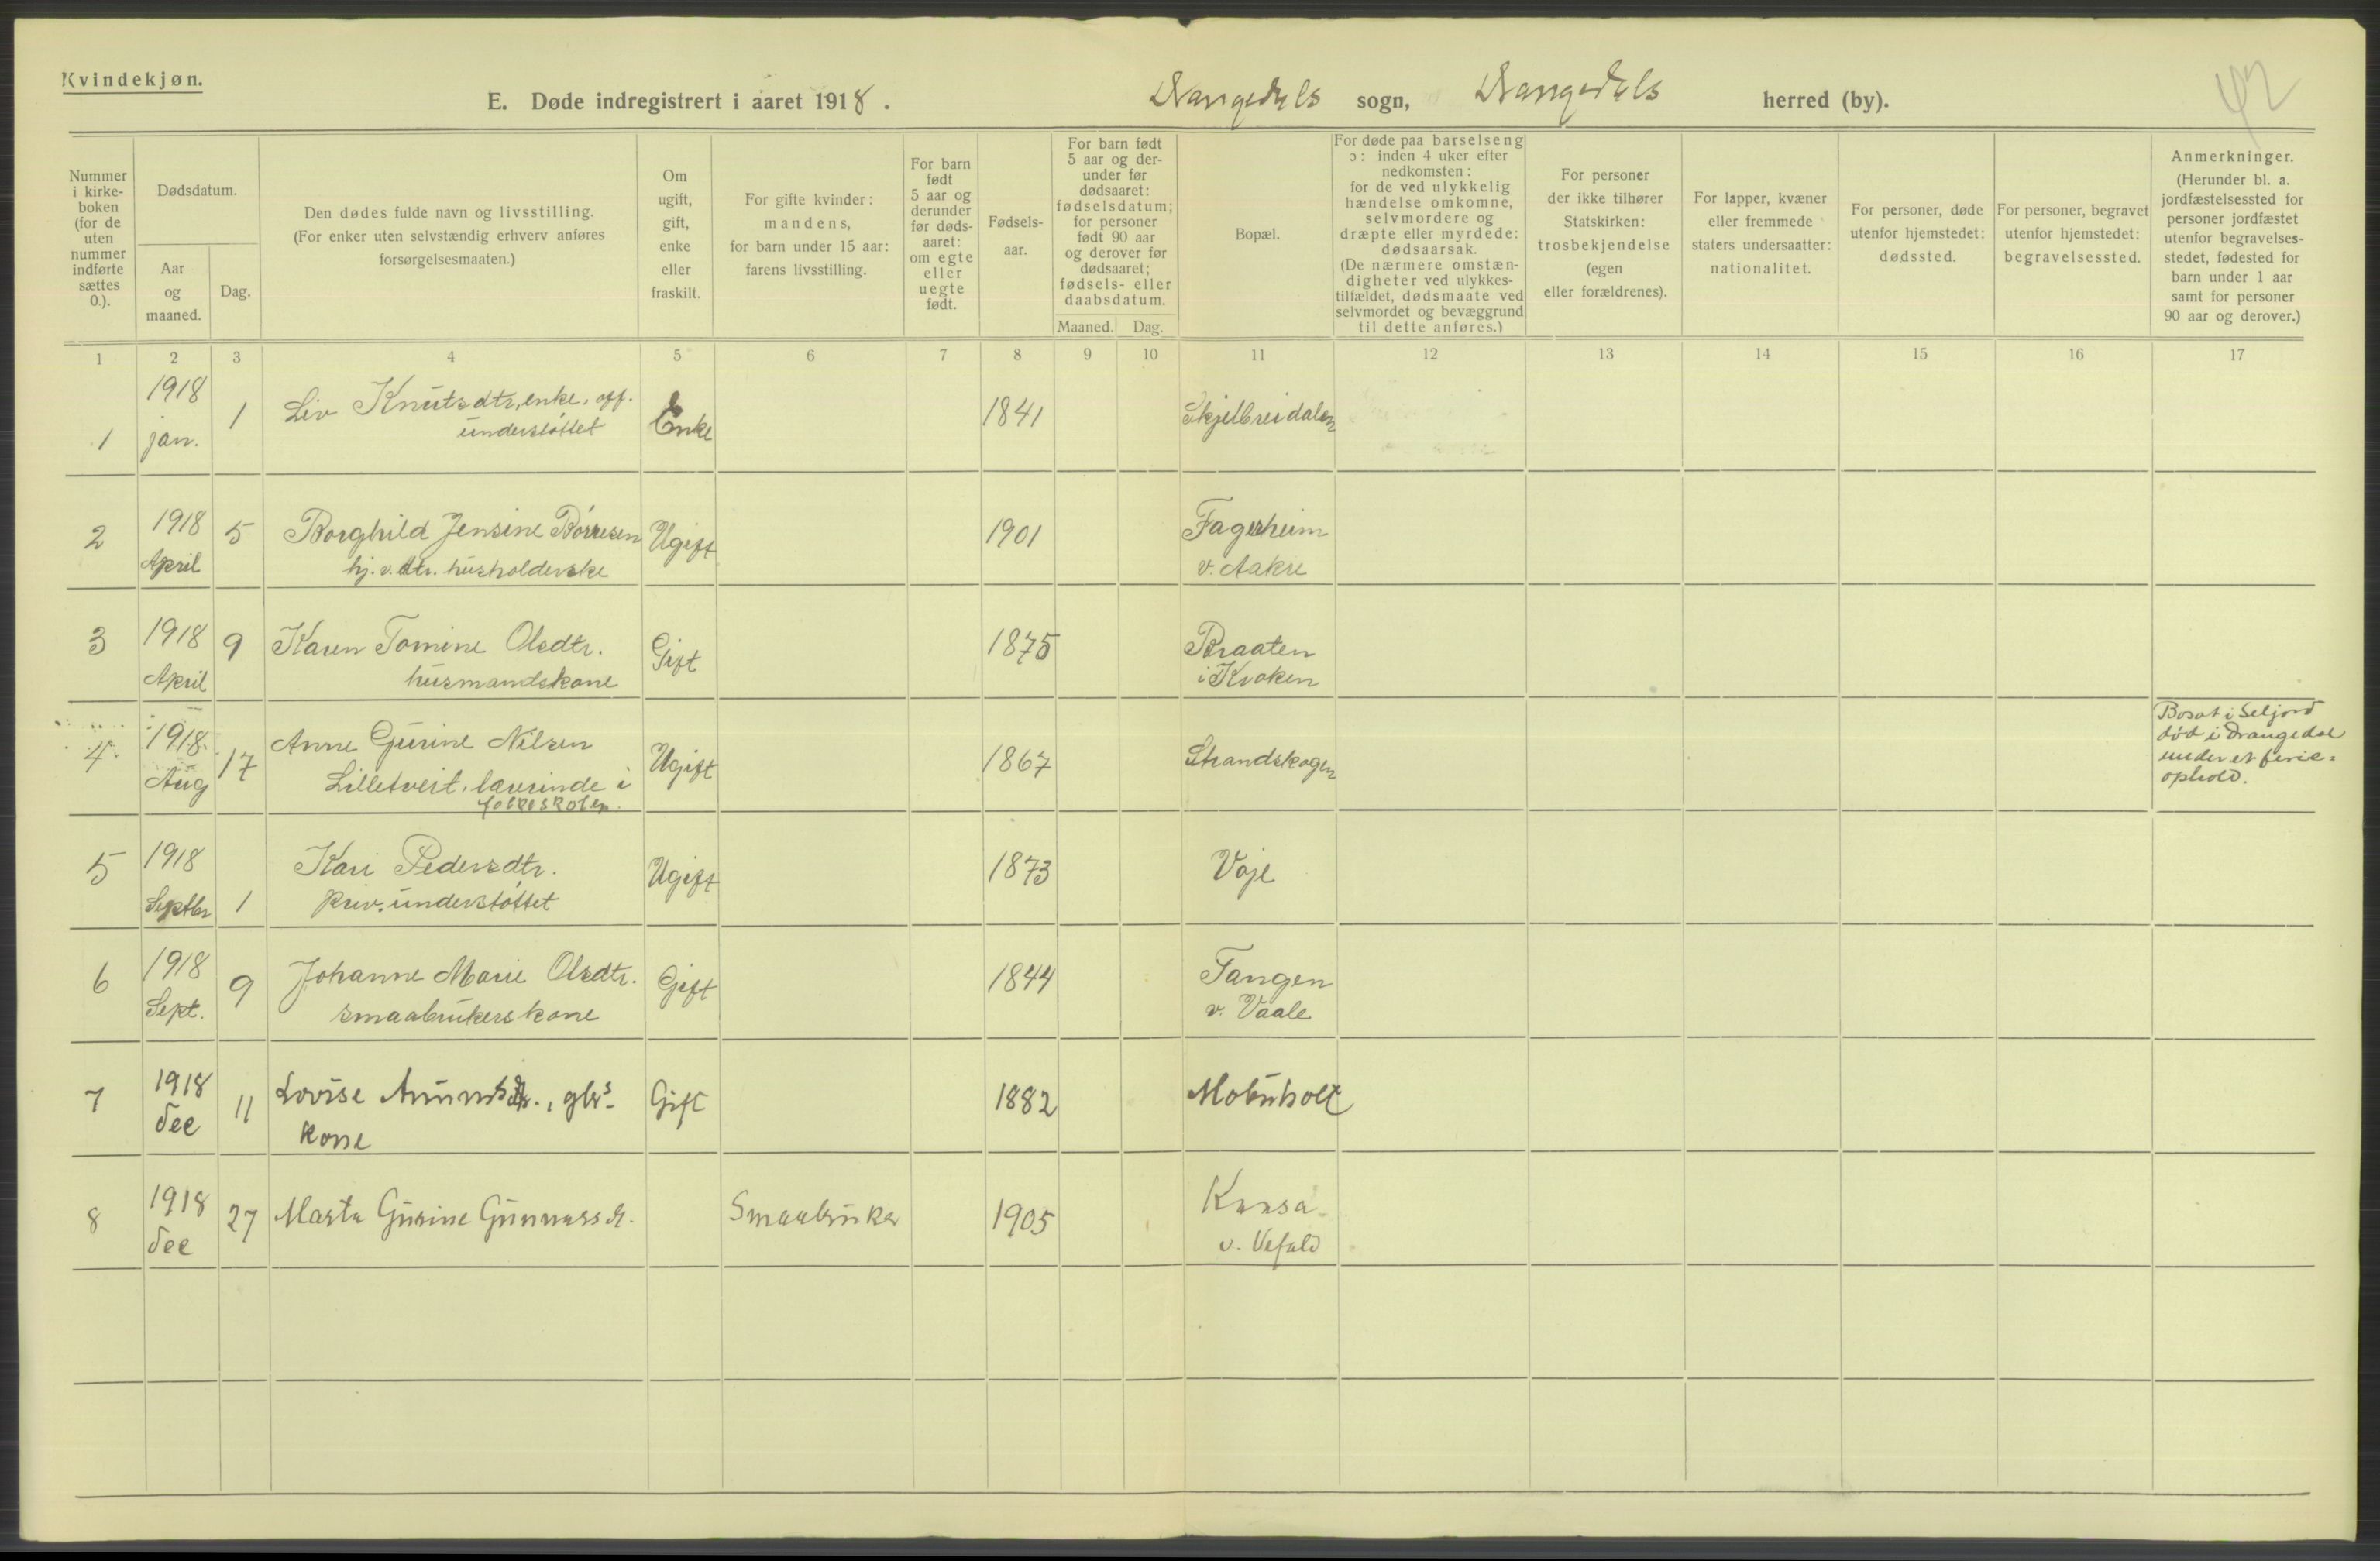 Kvindekjøn.
E. Døde indregistrert i aaret 1918. Drangedals sogn, Drangedals herred (by).
42
Nummer i kirke- boken (for de uten nummer indførte sættes 0.).
Dødsdatum.
Aar og maaned.
Dag.
Den dødes fulde navn og livsstilling.
(For enker uten selvstændig erhverv anføres
forsørgelsesmaaten.)
Om ugift, gift, enke eller fraskilt.
For gifte kvinder: mandens, for barn under 15 aar: farens livsstilling.
For barn født 5 aar og derunder før døds- aaret: om egte eller uegte født.
Fødsels- aar.
For barn født 5 aar og der- under før dødsaaret: fødselsdatum; for personer født 90 aar og derover før dødsaaret; fødsels- eller daabsdatum.
Maaned. Dag.
Bopæl.
For døde paa barselseng ɔ: inden 4 uker efter nedkomsten: for de ved ulykkelig hændelse omkomne, selvmordere og dræpte eller myrdede: dødsaarsak. (De nærmere omstæn- digheter ved ulykkes- tilfældet, dødsmaate ved selvmordet og bevæggrund til dette anføres.)
For personer der ikke tilhører Statskirken: trosbekjendelse (egen eller forældrenes).
For lapper, kvæner eller fremmede staters undersaatter: nationalitet.
For personer, døde utenfor hjemstedet: dødssted.
For personer, begravet utenfor hjemstedet: begravelsessted.
Anmerkninger. (Herunder bl. a. jordfæstelsessted for personer jordfæstet utenfor begravelses- stedet, fødested for barn under 1 aar samt for personer 90 aar og derover.)
1 2 3 4 5 6 7 8 9 10 11 12 13 14 15 16 17
1 1918 jan. 1 Liv Knutsdtr, enke, off. understøttet Enke 1841 Skjelbreidalen
2 1918 April 5 Borghild Jensine Børresen hj. v. dtr. husholderske Ugift 1901 Fagerheim v. Aakre
3 1918 April 9 Karen Tomine Olsdtr. husmandskone Gift 1875 Braaten i Kroken
4 1918 Aug 17 Anne Gurine Nilsen Lilletveit, lærerinde i folkeskolen. Ugift 1867 Strandskogen Bosat i Seljord død i Drangedal under et ferie= ophold.
5 1918 Septbr 1 Kari Pedersdtr. priv. understøttet Ugift 1873 Voje
6 1918 Sept. 9 Johanne Marie Olsdtr. smaabrukerskone Gift 1844 Tangen v. Vaale
7 1918 dec 11 Lovise gbrs kone Gift 1882
8 1918 dec 27 Marta Gurine Gunnarsd. Smaabruker 1905 v. Vefald